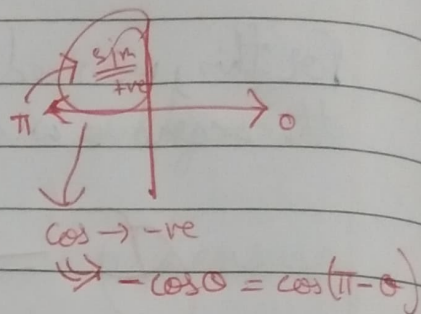 sin
+ve
π 0
cos → -ve
⇒ -cosθ = cos(π-θ)